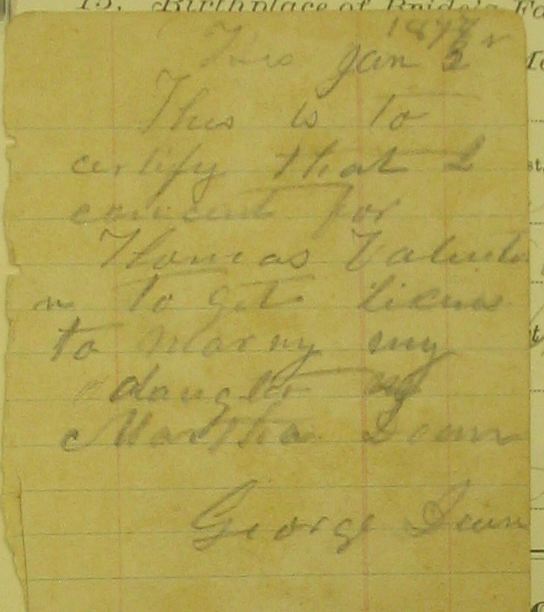 13. Birthplace of Bride's Fa
1877
This Jan 3
This is to
certify that I
concent for
Thomas Valenti
n to get licens
to marry my
daughter
Martha Dean
George Dean